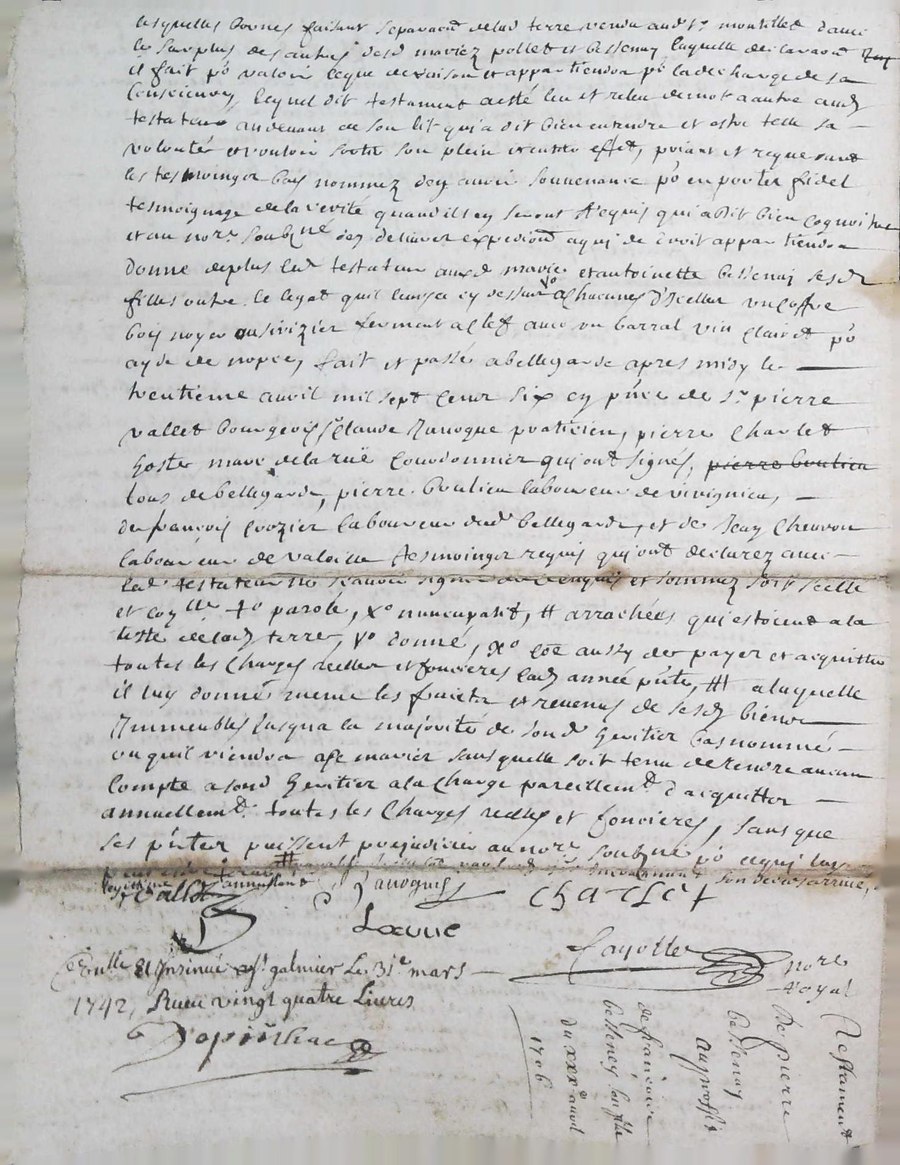 lesquelles bornes faisant separaon delad terre vendu aud sr montillet dauec
le surplus des autres desd mariez pollet et bessenay laquelle declaraon
il fait po valoir ce que de raison et appartiendra po la descharge de sa
Conscience, lequel dit testament a esté leu et releu de mot a autre aud
testateur audeuant de son lit qui a dit bien entendre et estre telle sa
volonté et vouloir sortir son plein et entier effet, priant et requerant
les tesmoings bas nommez d'en auoir souuenance po en porter fidel
tesmoignage de la verité quand ils en seront requis qui a dit bien cognoitre
et au nore soubzné den deliurer expedion a qui de droit appartiendra
donne de plus led testateur auxd marie et antoinette bessenay sesd
filles outre le legat qu'il leur a cy dessus Vo a chacunes d'Icelles un coffre
bois noyer ou sivizier fermant a clef auec un barral vin clairet po
ayde de nopces, fait et passé a bellegarde apres midy le
trentieme auril mil sept Cent six en pnce de sr pierre
vallet bourgeois, sr Claude Janoque praticien, pierre Charlet
hoste, marc de la rüe Courdonnier qui ont signés, pierre boulieu
tous de bellegarde, pierre boulieu laboureur de vivignieu,
de francois crozier laboureur dud bellegarde, et de Jean Cheuron
laboureur de valeille tesmoings requis qui ont declarez auec
led testateur ne scauoir signer de ce enquis et sommez soit scellé
et Con lle +o parolé, Xo nuncupatif, # arrachées qui estoient a la
teste de lad terre, Vo donné, Xo coe aussy de payer et acquitter
toutes les Charges reelles et foncieres lad année pnte, # a laquelle
il luy donne meme les fruicts et reuenus de sesd biens
Immeubles Jusqua la majorité de sond heritier bas nommé
ou quil viendra a se marier sans quelle soit tenu de rendre aucun
Compte a sond heritier a la Charge pareillemt d'acquitter
annuellemt toutes les Charges reelles et foncieres, sans que
ses pntes puissent prejudicier au nore soubzné po ce qui luy
Vallet Janoque Charlet
Larue
Cayotte nore royal
Controllé et Insinué a st galmier Le 31e mars
1742, Receu vingt quatre Livres
Dapinhac
Testament
De pierre
bessenay
au proffit
de francois
besseney son fils
du XXXe auril
1706